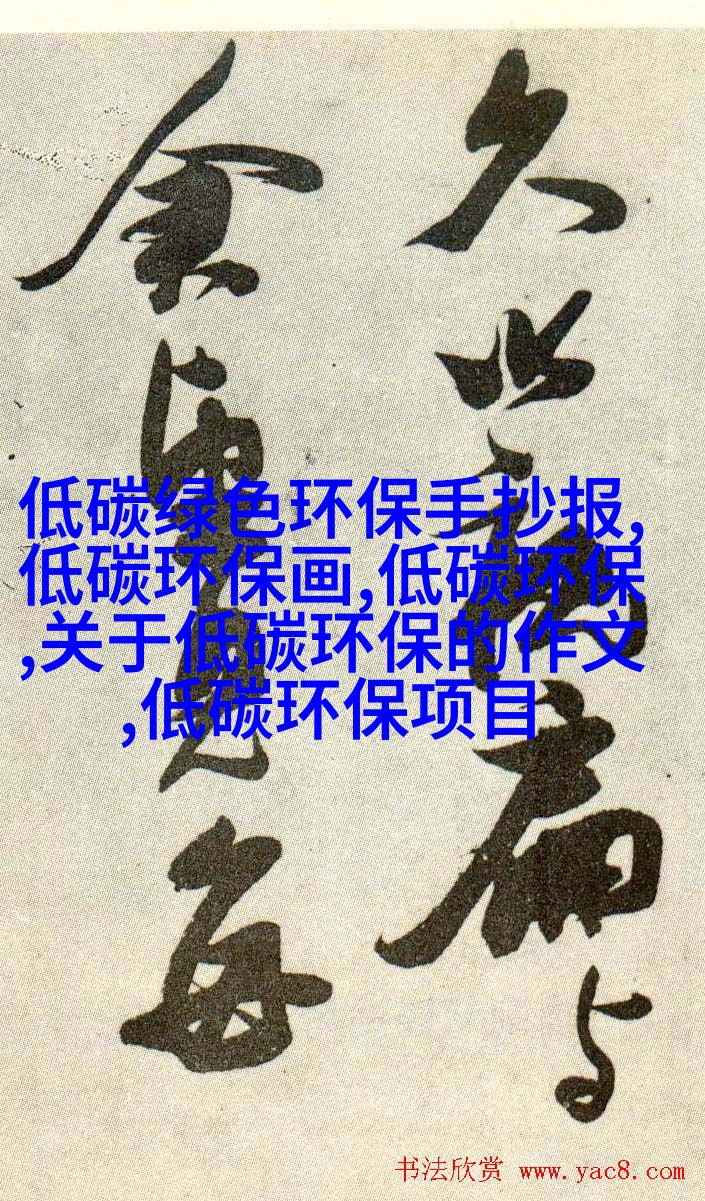 久此
与
余
每
低碳绿色环保手抄报,
低碳环保画,低碳环保
,关于低碳环保的作文
,低碳环保项目
书法欣赏 www.yac8.com